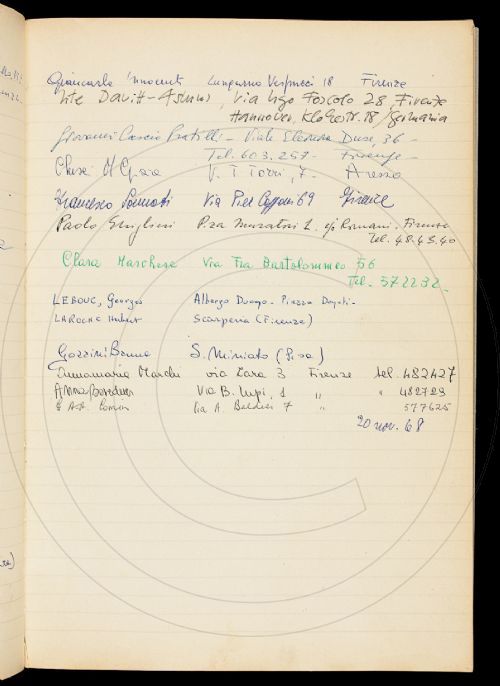 Giancarlo Innocenti Lungarno Vespucci 18 Firenze
Ute Davitt-Asmus, Via Ugo Foscolo 28, Firenze
Hannover, /Germania
Giovanni Cascio Pratilli - Viale Eleonora Duse, 36 -
Tel. 603.257 - Firenze -
V. , 7 - Arezzo
Francesco Via Pier Capponi 69 Firenze
Paolo P.za Muratori 2. Romani. Firenze
Tel. 48.43.40
Clara Marchese Via Fra Bartolommeo 56
Tel. 572232
LEBOUC, Georges Albergo - Piazza
LAROCHE Hubert Scarperia (Firenze)
Gozzini Bruna S. Miniato (Pisa)
Annamaria Marchi via Zara 3 Firenze tel. 482427
Anna Beneducci Via B. Lupi, 1 " " 482729
Via A. Baldesi 7 " 577625
20 nov. 68